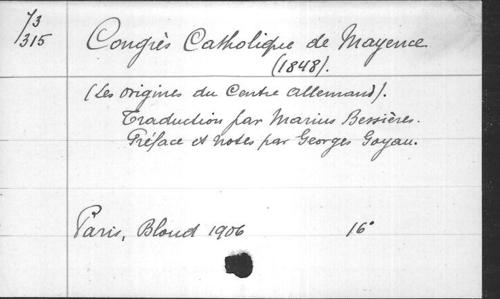 73
/315
Congrès Catholique de Mayence
(1848).
(Les origines du Centre allemand).
Traduction par Marius Bessières.
Préface et notes par Georges Goyau.
Paris, Bloud 1906 16°